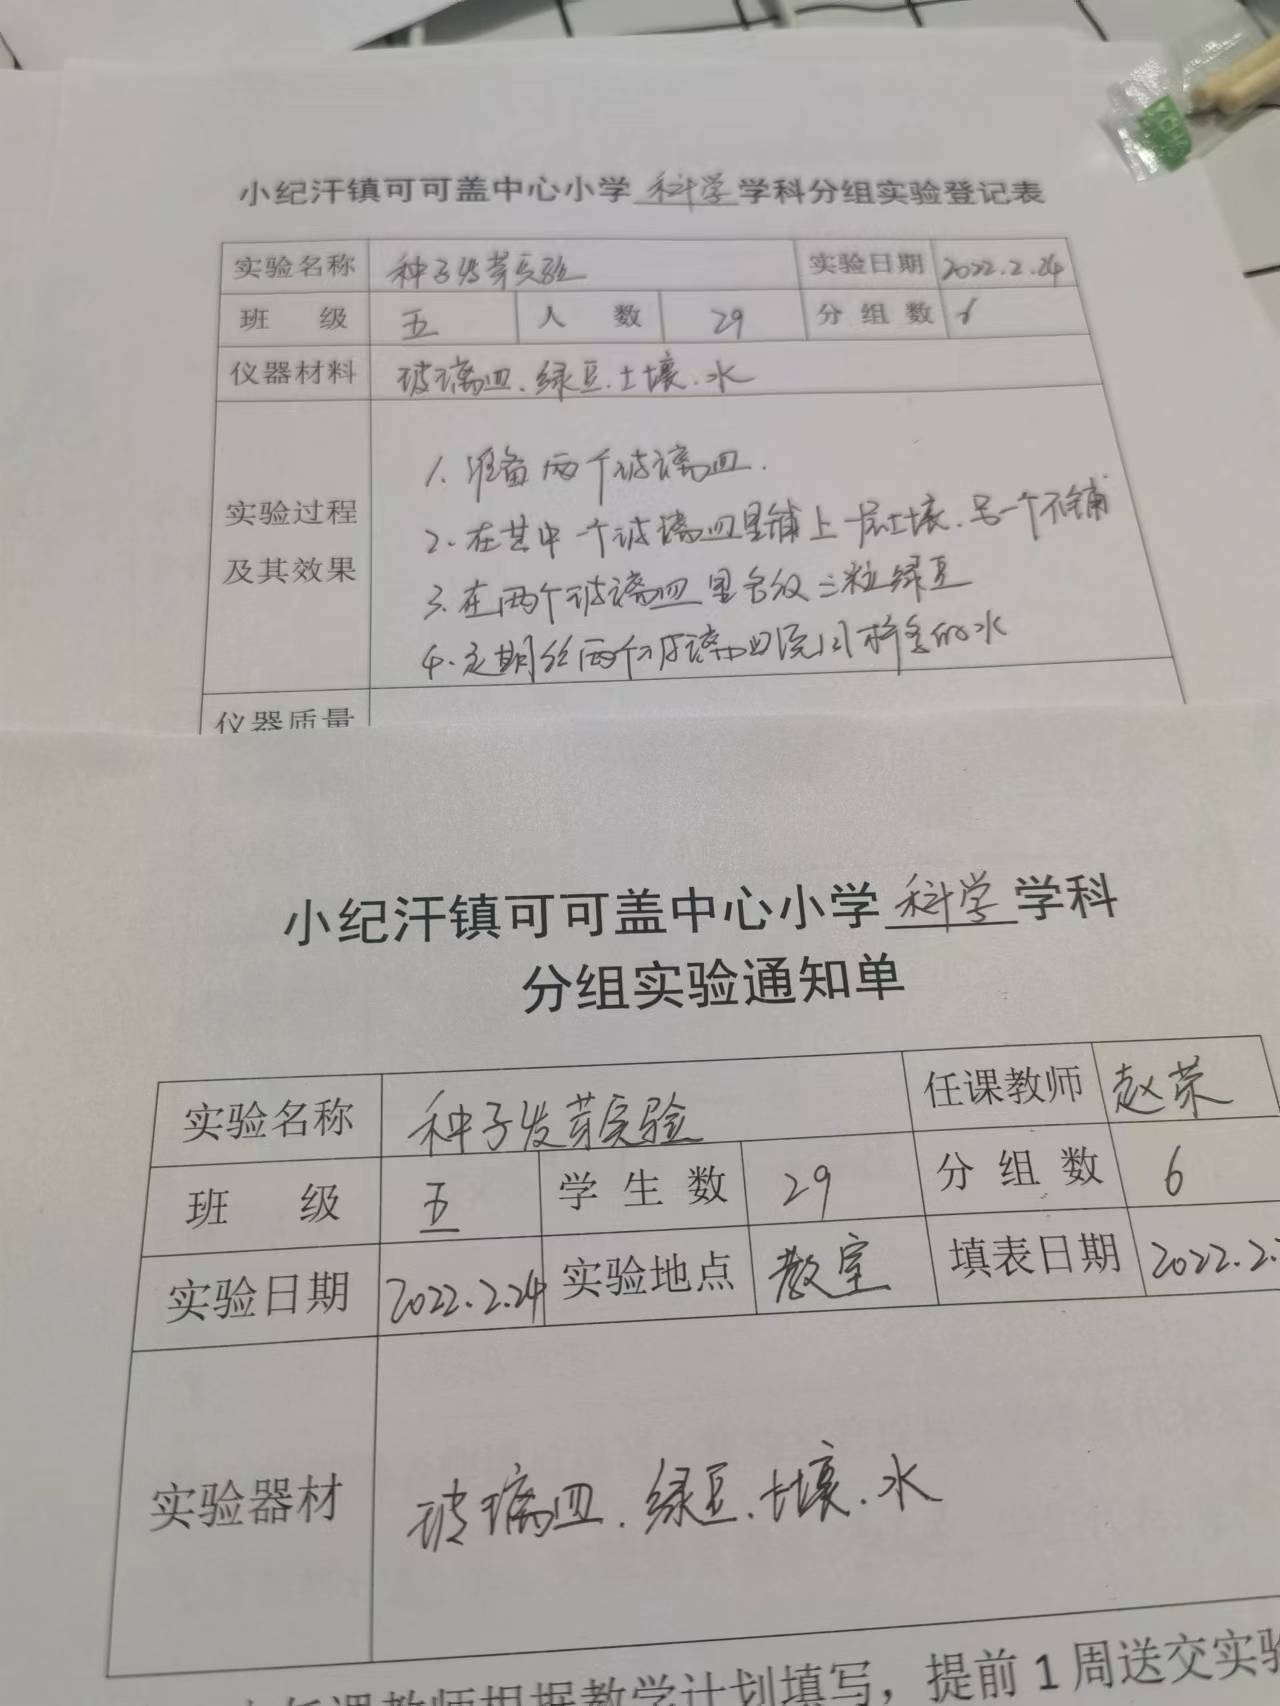 小纪汗镇可可盖中心小学 科学 学科分组实验登记表
实验名称 种子发芽实验 实验日期 2022.2.24
班 级 五 人 数 29 分 组 数 6
仪器材料 玻璃皿.绿豆.土壤.水
实验过程
及其效果
1.准备两个玻璃皿.
2.在其中一个玻璃皿里铺上一层土壤.另一个不铺
3.在两个玻璃皿里各放三粒绿豆
4.定期给两个玻璃皿浇同样多的水
仪器质量
小纪汗镇可可盖中心小学 科学 学科
分组实验通知单
实验名称 种子发芽实验 任课教师 赵荣
班 级 五 学 生 数 29 分 组 数 6
实验日期 2022.2.24 实验地点 教室 填表日期 2022.2.
实验器材 玻璃皿.绿豆.土壤.水
任课教师根据教学计划填写，提前1周送交实验